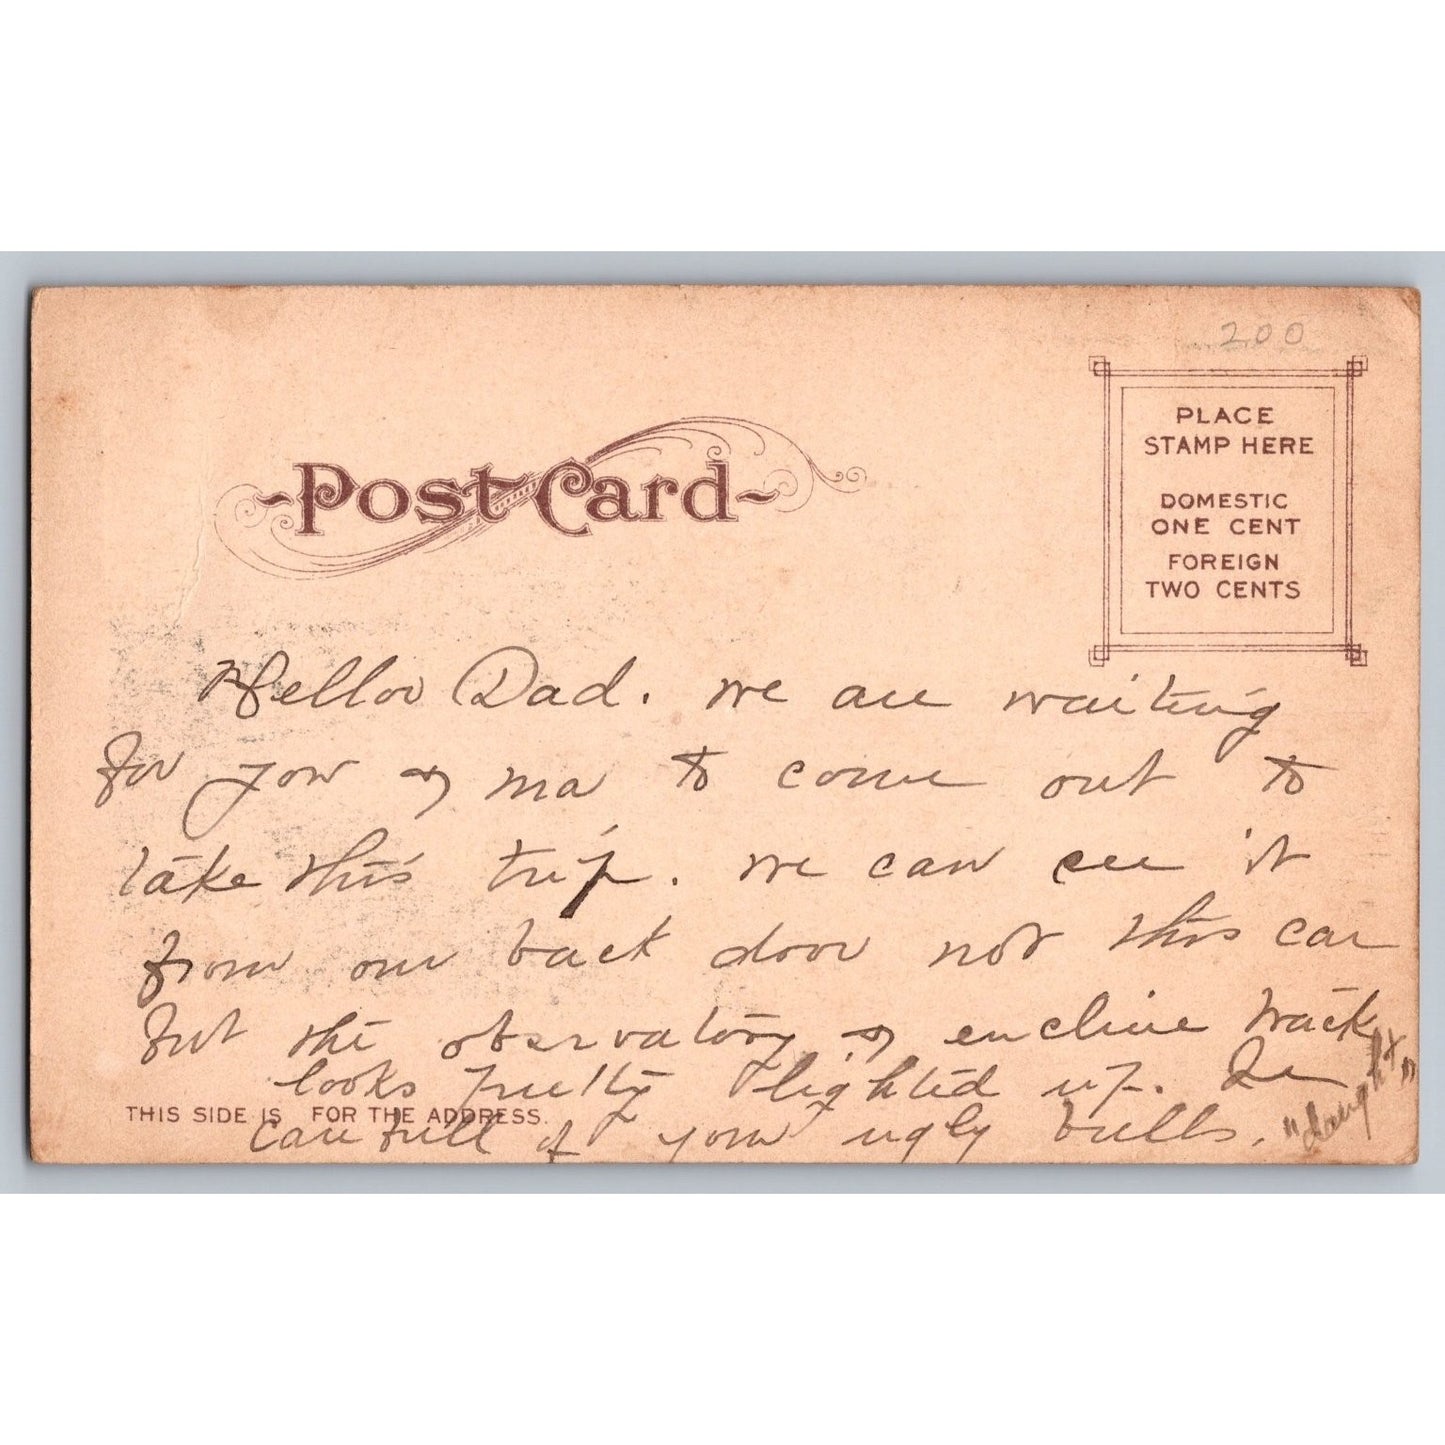 200
PLACE
STAMP HERE
DOMESTIC
ONE CENT
FOREIGN
TWO CENTS
Post Card
Helloo Dad. we are waiting
for you & ma to come out to
take this trip. we can see it
from our back door not this car
but the observatory & encline track
looks pretty lighted up. Be
THIS SIDE IS FOR THE ADDRESS.
carefull of your ugly bulls.